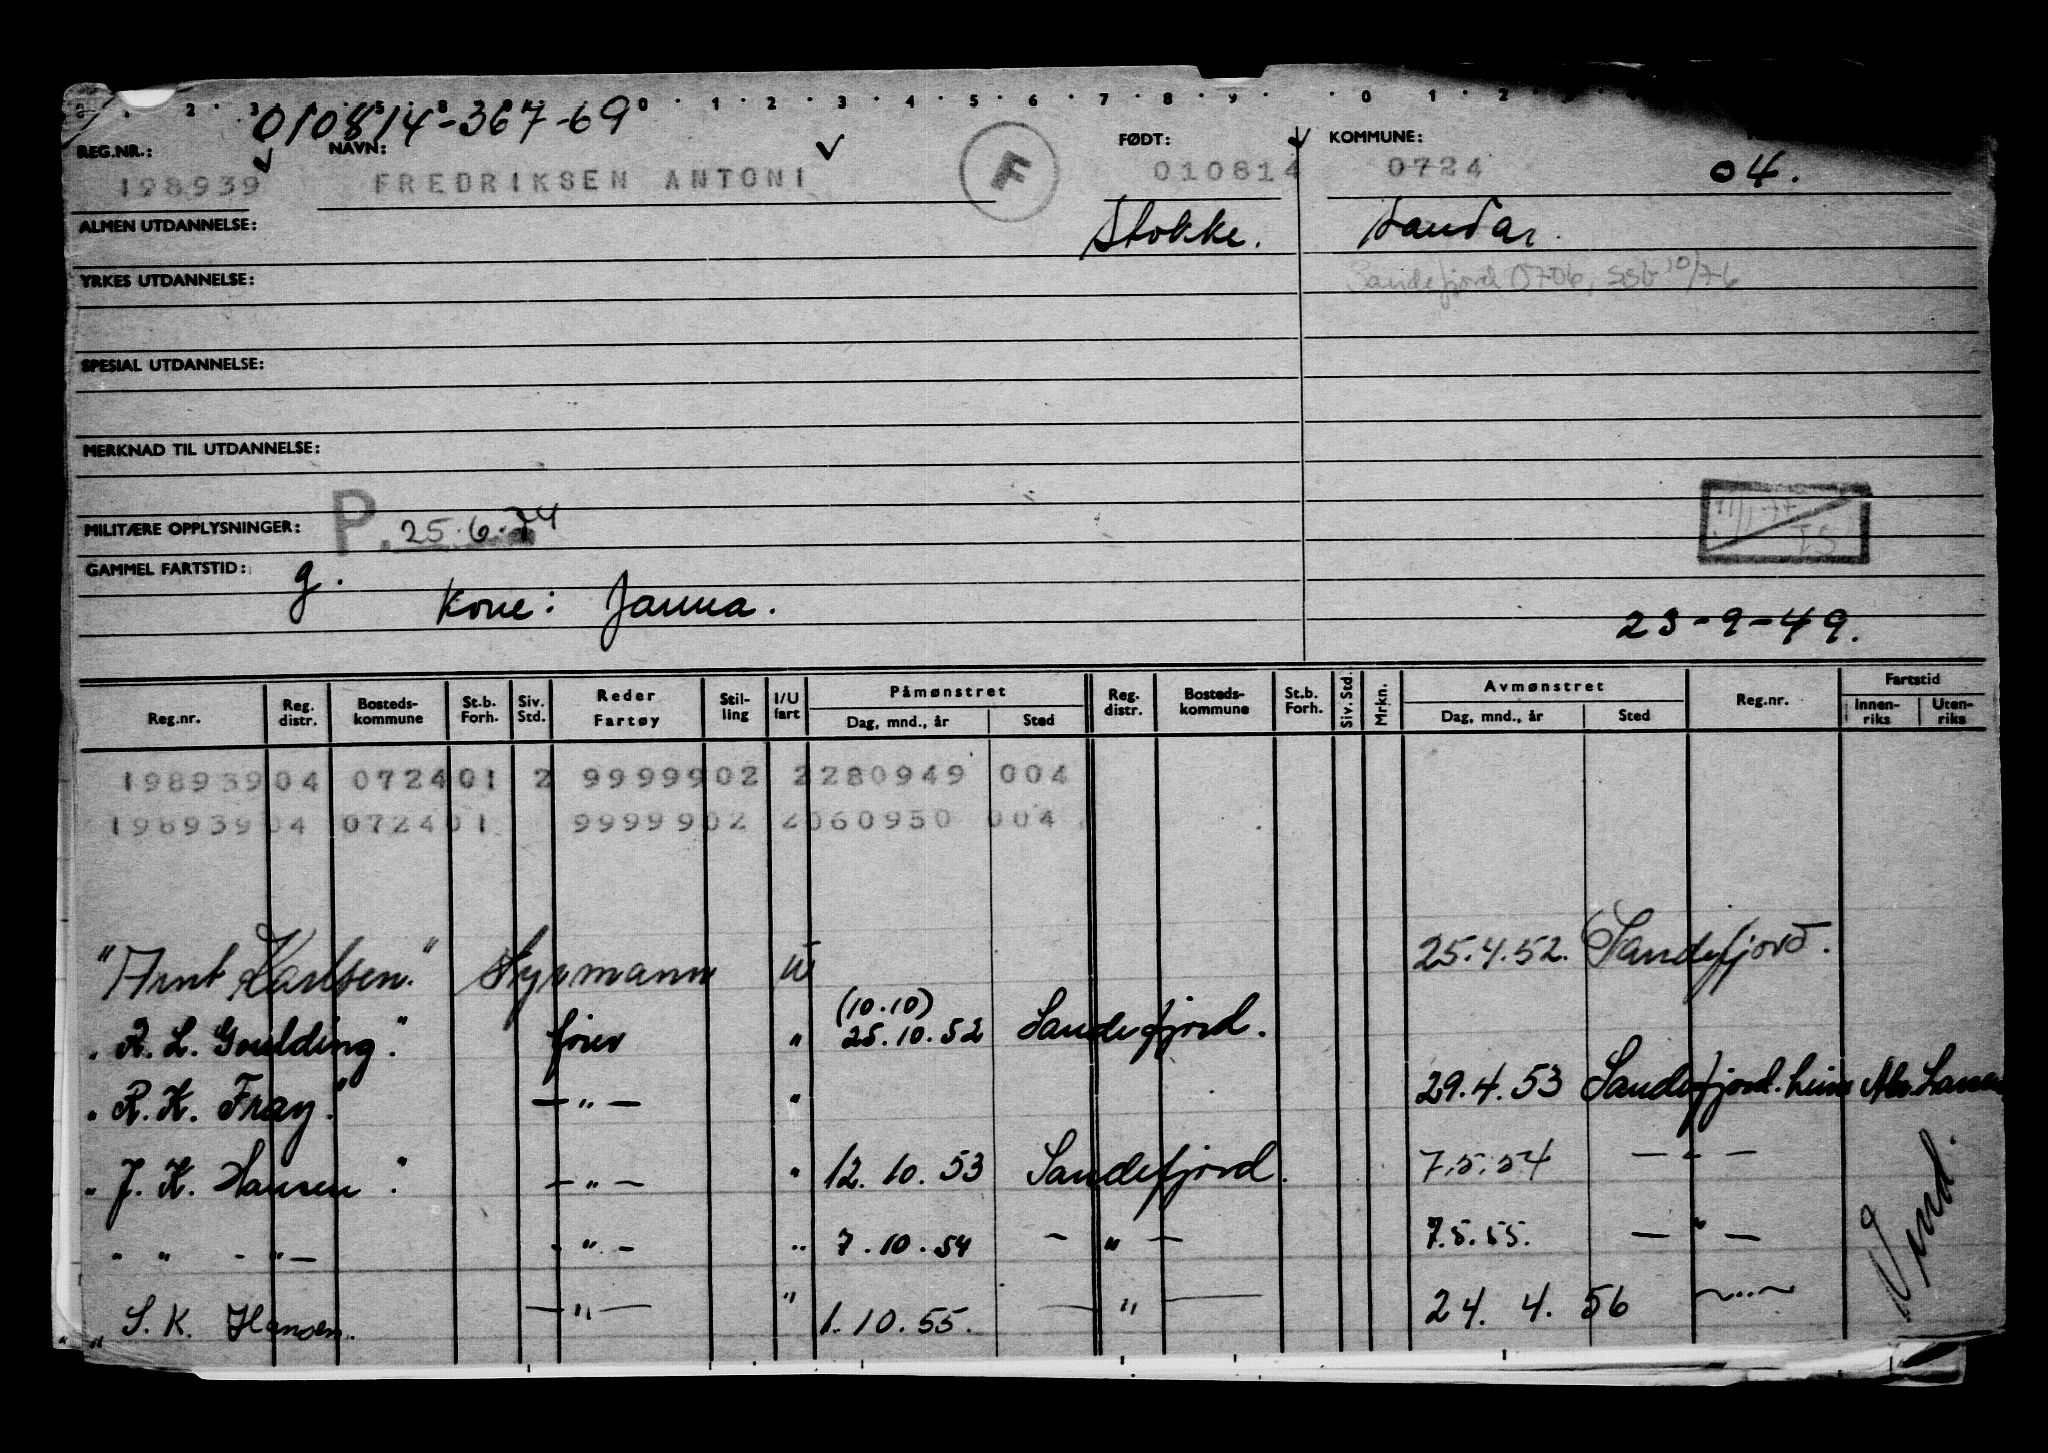 2 3 5 8 0 1 2 3 4 5 6 7 8 9 0 1 2
010814-36769
REG.NR.: NAVN: FØDT: KOMMUNE:
198939 FREDRIKSEN ANTONI F 010814 0724 04.
ALMEN UTDANNELSE: Stokke. Sandar.
YRKES UTDANNELSE: Sandefjord 0706,
SPESIAL UTDANNELSE:
MERKNAD TIL UTDANNELSE:
MILITÆRE OPPLYSNINGER: P. 25.6.74
GAMMEL FARTSTID: g. Kone: Janna.
23-9-49.
Reg.nr. Reg. distr. Bosteds-kommune St.b. Forh. Siv. Std. Reder Fartøy Stil-ling I/U fart Påmønstret Dag, mnd., år Sted Reg. distr. Bosteds-kommune St.b. Forh. Siv. Std. Mrkn. Avmønstret Dag, mnd., år Sted Reg.nr. Fartstid Innen-riks Uten-riks
198939 04 0724 01 2 99999 02 2 280949 004
198939 04 0724 01 99999 02 2 060950 004
"Arnt Karlsen." Styrmann U 25.4.52. Sandefjord.
(10.10)
" R. L. Goulding." fører " 25.10.52 Sandefjord.
" R. K. Fray." —"— " 29.4.53 Sandefjord.
" J. K. Hansen". —"— " 12.10.53 Sandefjord. 7.5.54 —"—
" " -"— -"- " 7.10.54 —"— 7.5.55. —"—
" S. K. Hansen. —"— " 1.10.55. —"— 24.4.56 —"—
Vend.